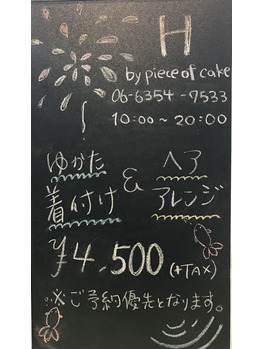 H
by piece of cake
06-6354-7533
10:00~20:00
ゆかた & ヘア
着付け アレンジ
¥4,500 (+TAX)
※ご予約優先となります。